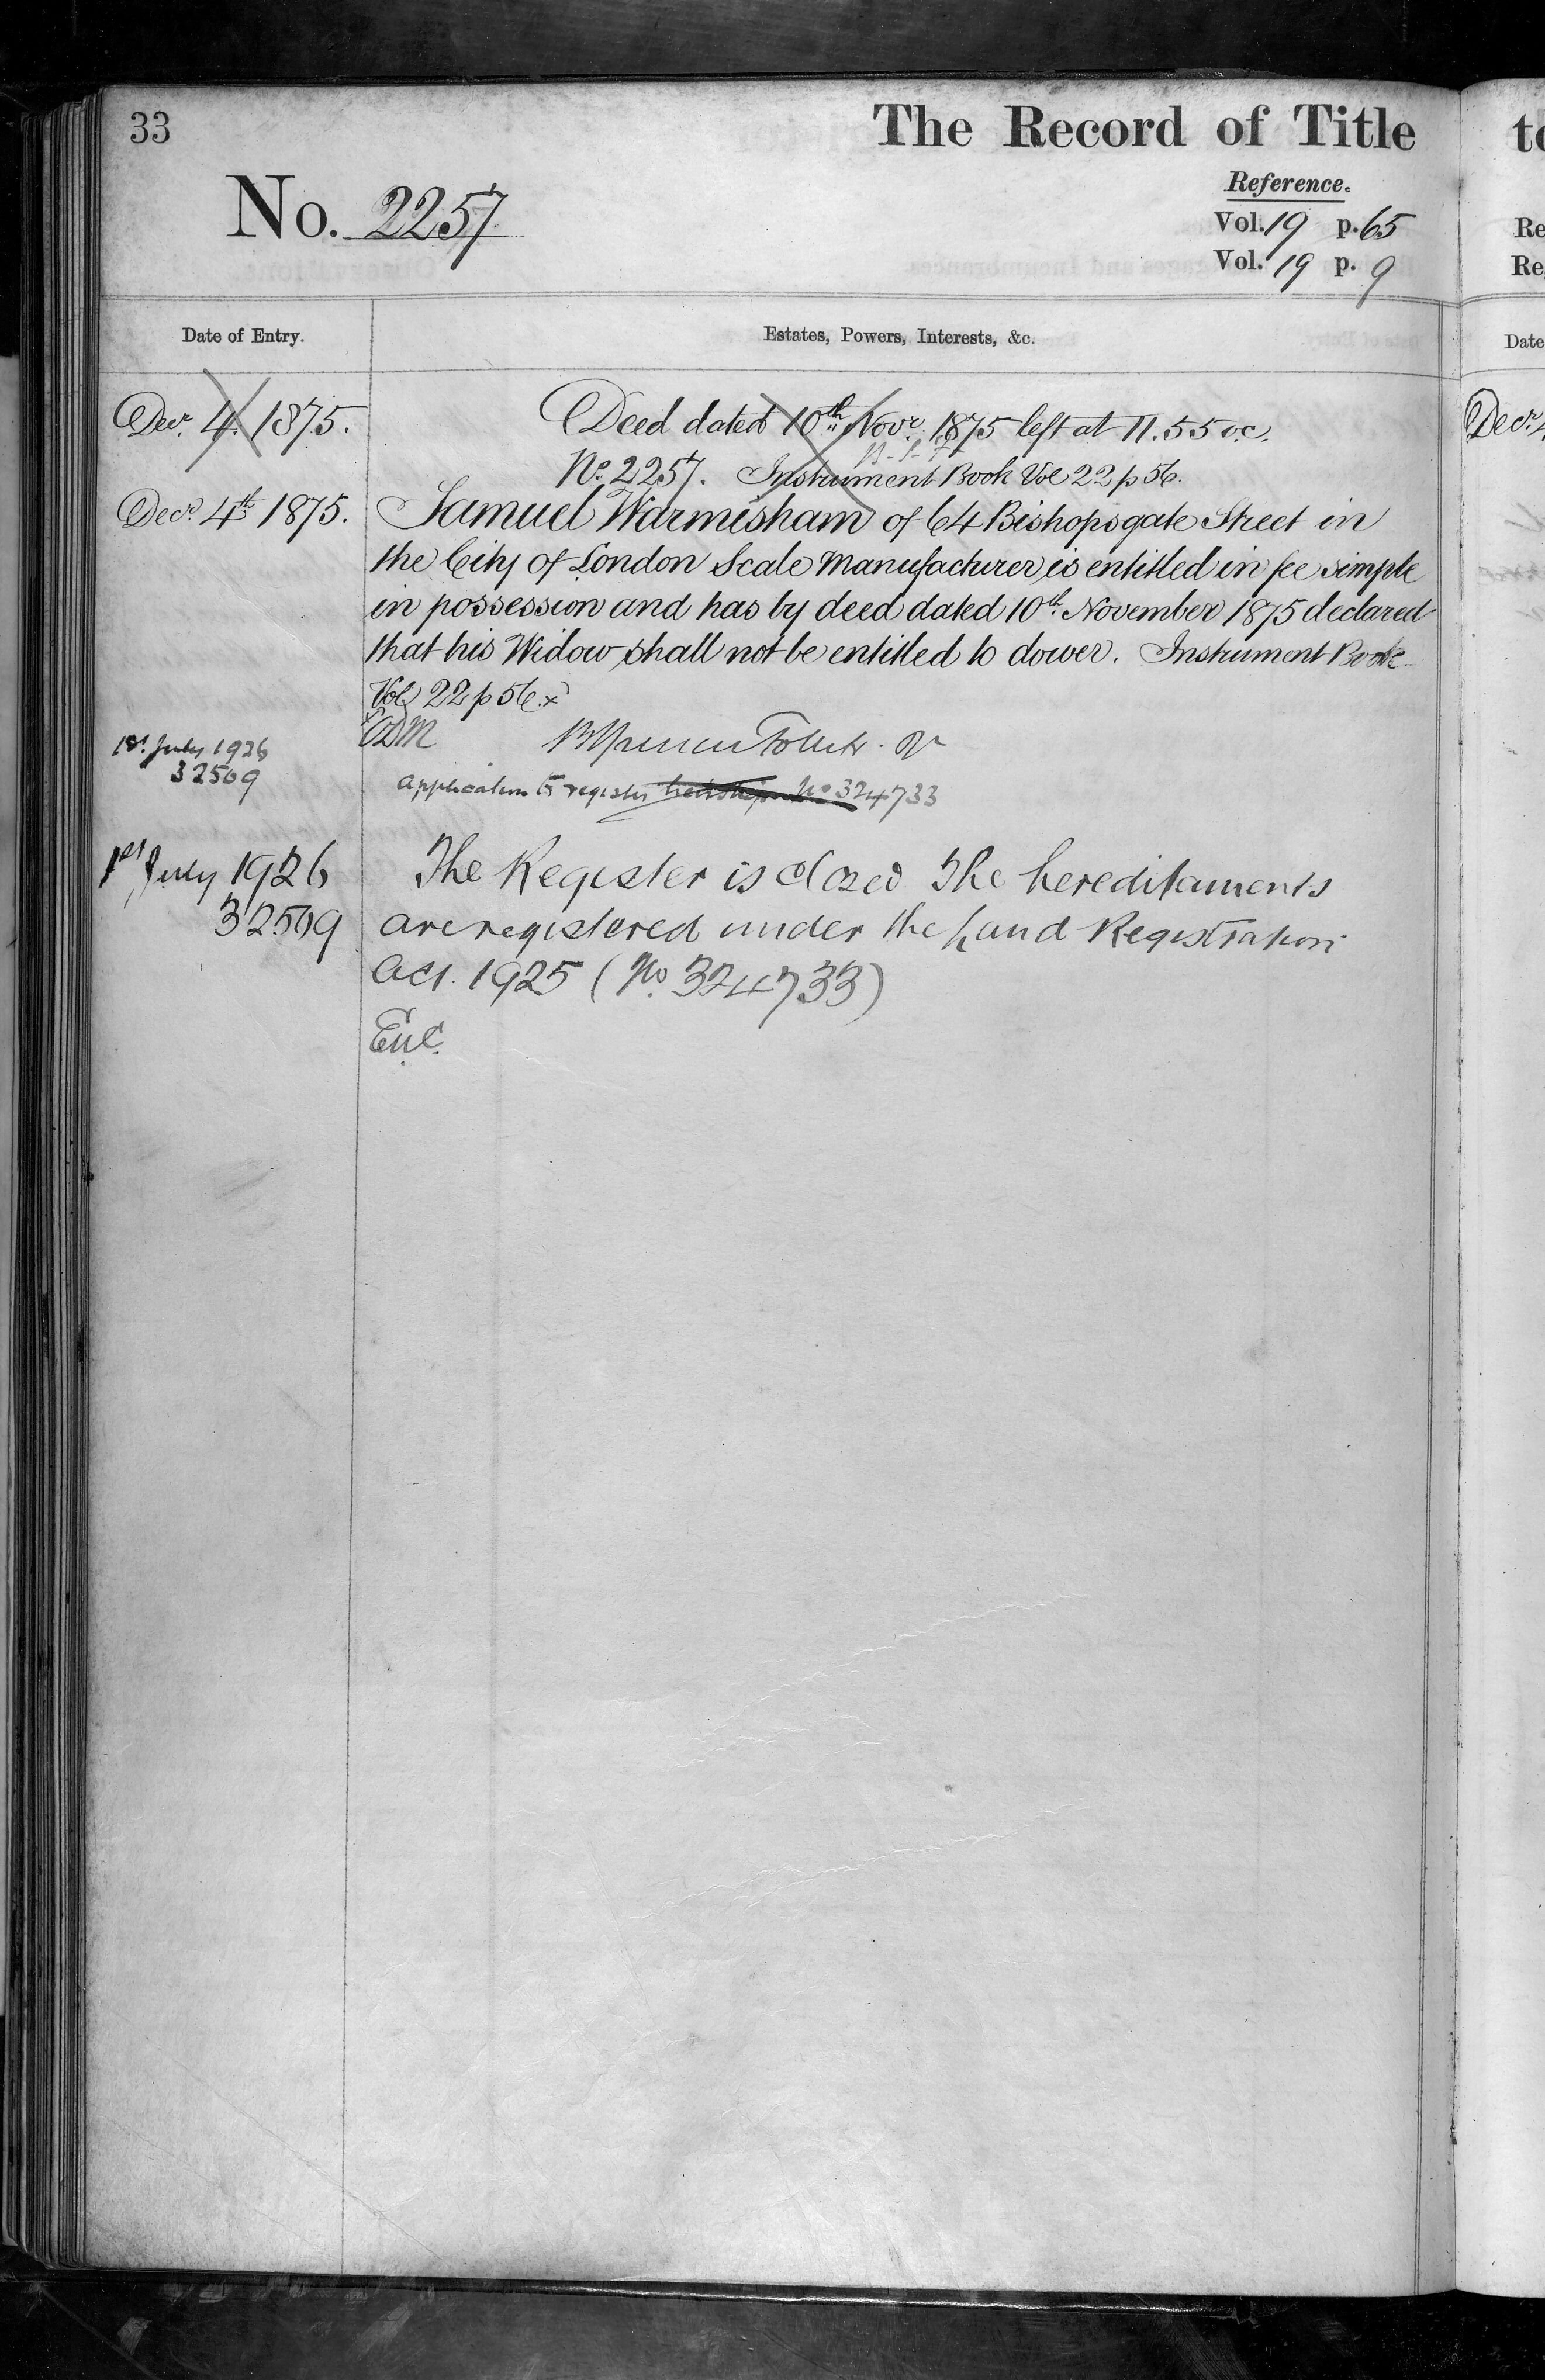 33
The Record of Title
Reference.
No. 2257.
Vol. 19 p. 65
Vol. 19 p. 9
Date of Entry.
Estates, Powers, Interests, &c.
Decr. 4. 1875.
Deed dated 10th Novr. 1875 left at 11.55 o.c.
No. 2257. Instrument Book Vol 22 p 56.
Decr. 4th 1875.
Samuel Warmisham of 64 Bishopsgate Street in
the City of London Scale Manufacturer is entitled in fee simple
in possession and has by deed dated 10th. November 1875 declared
that his Widow shall not be entitled to dower. Instrument Book
Vol 22 p 56. x
1st July 1926
32509
Application to register No 324733
1st July 1926
32509
The Register is closed The hereditaments
are registered under the Land Registration
Act. 1925 (No. 324733)
to
Re
Re
Date
Decr. 4